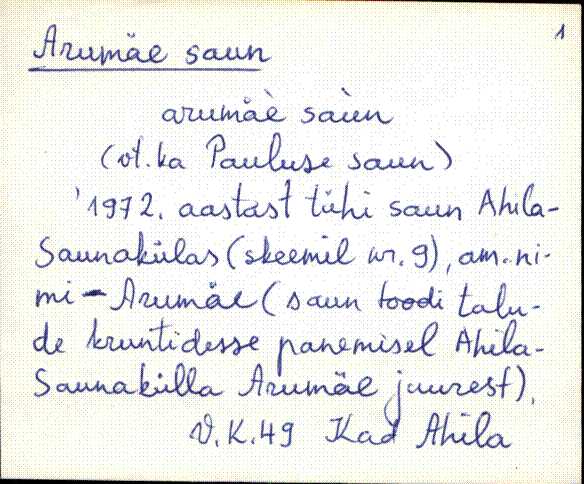 1
Arumäe saun
arumäè saùn
(vt. ka Pauluse saun)
'1972. aastast tühi saun Ahila-
Saunakülas (skeemil nr. 9), am. ni-
mi - Arumäe (saun toodi talu-
de kruntidesse panemisel Ahila-
Saunakülla Arumäe juurest).
V.K.49 Kad Ahila